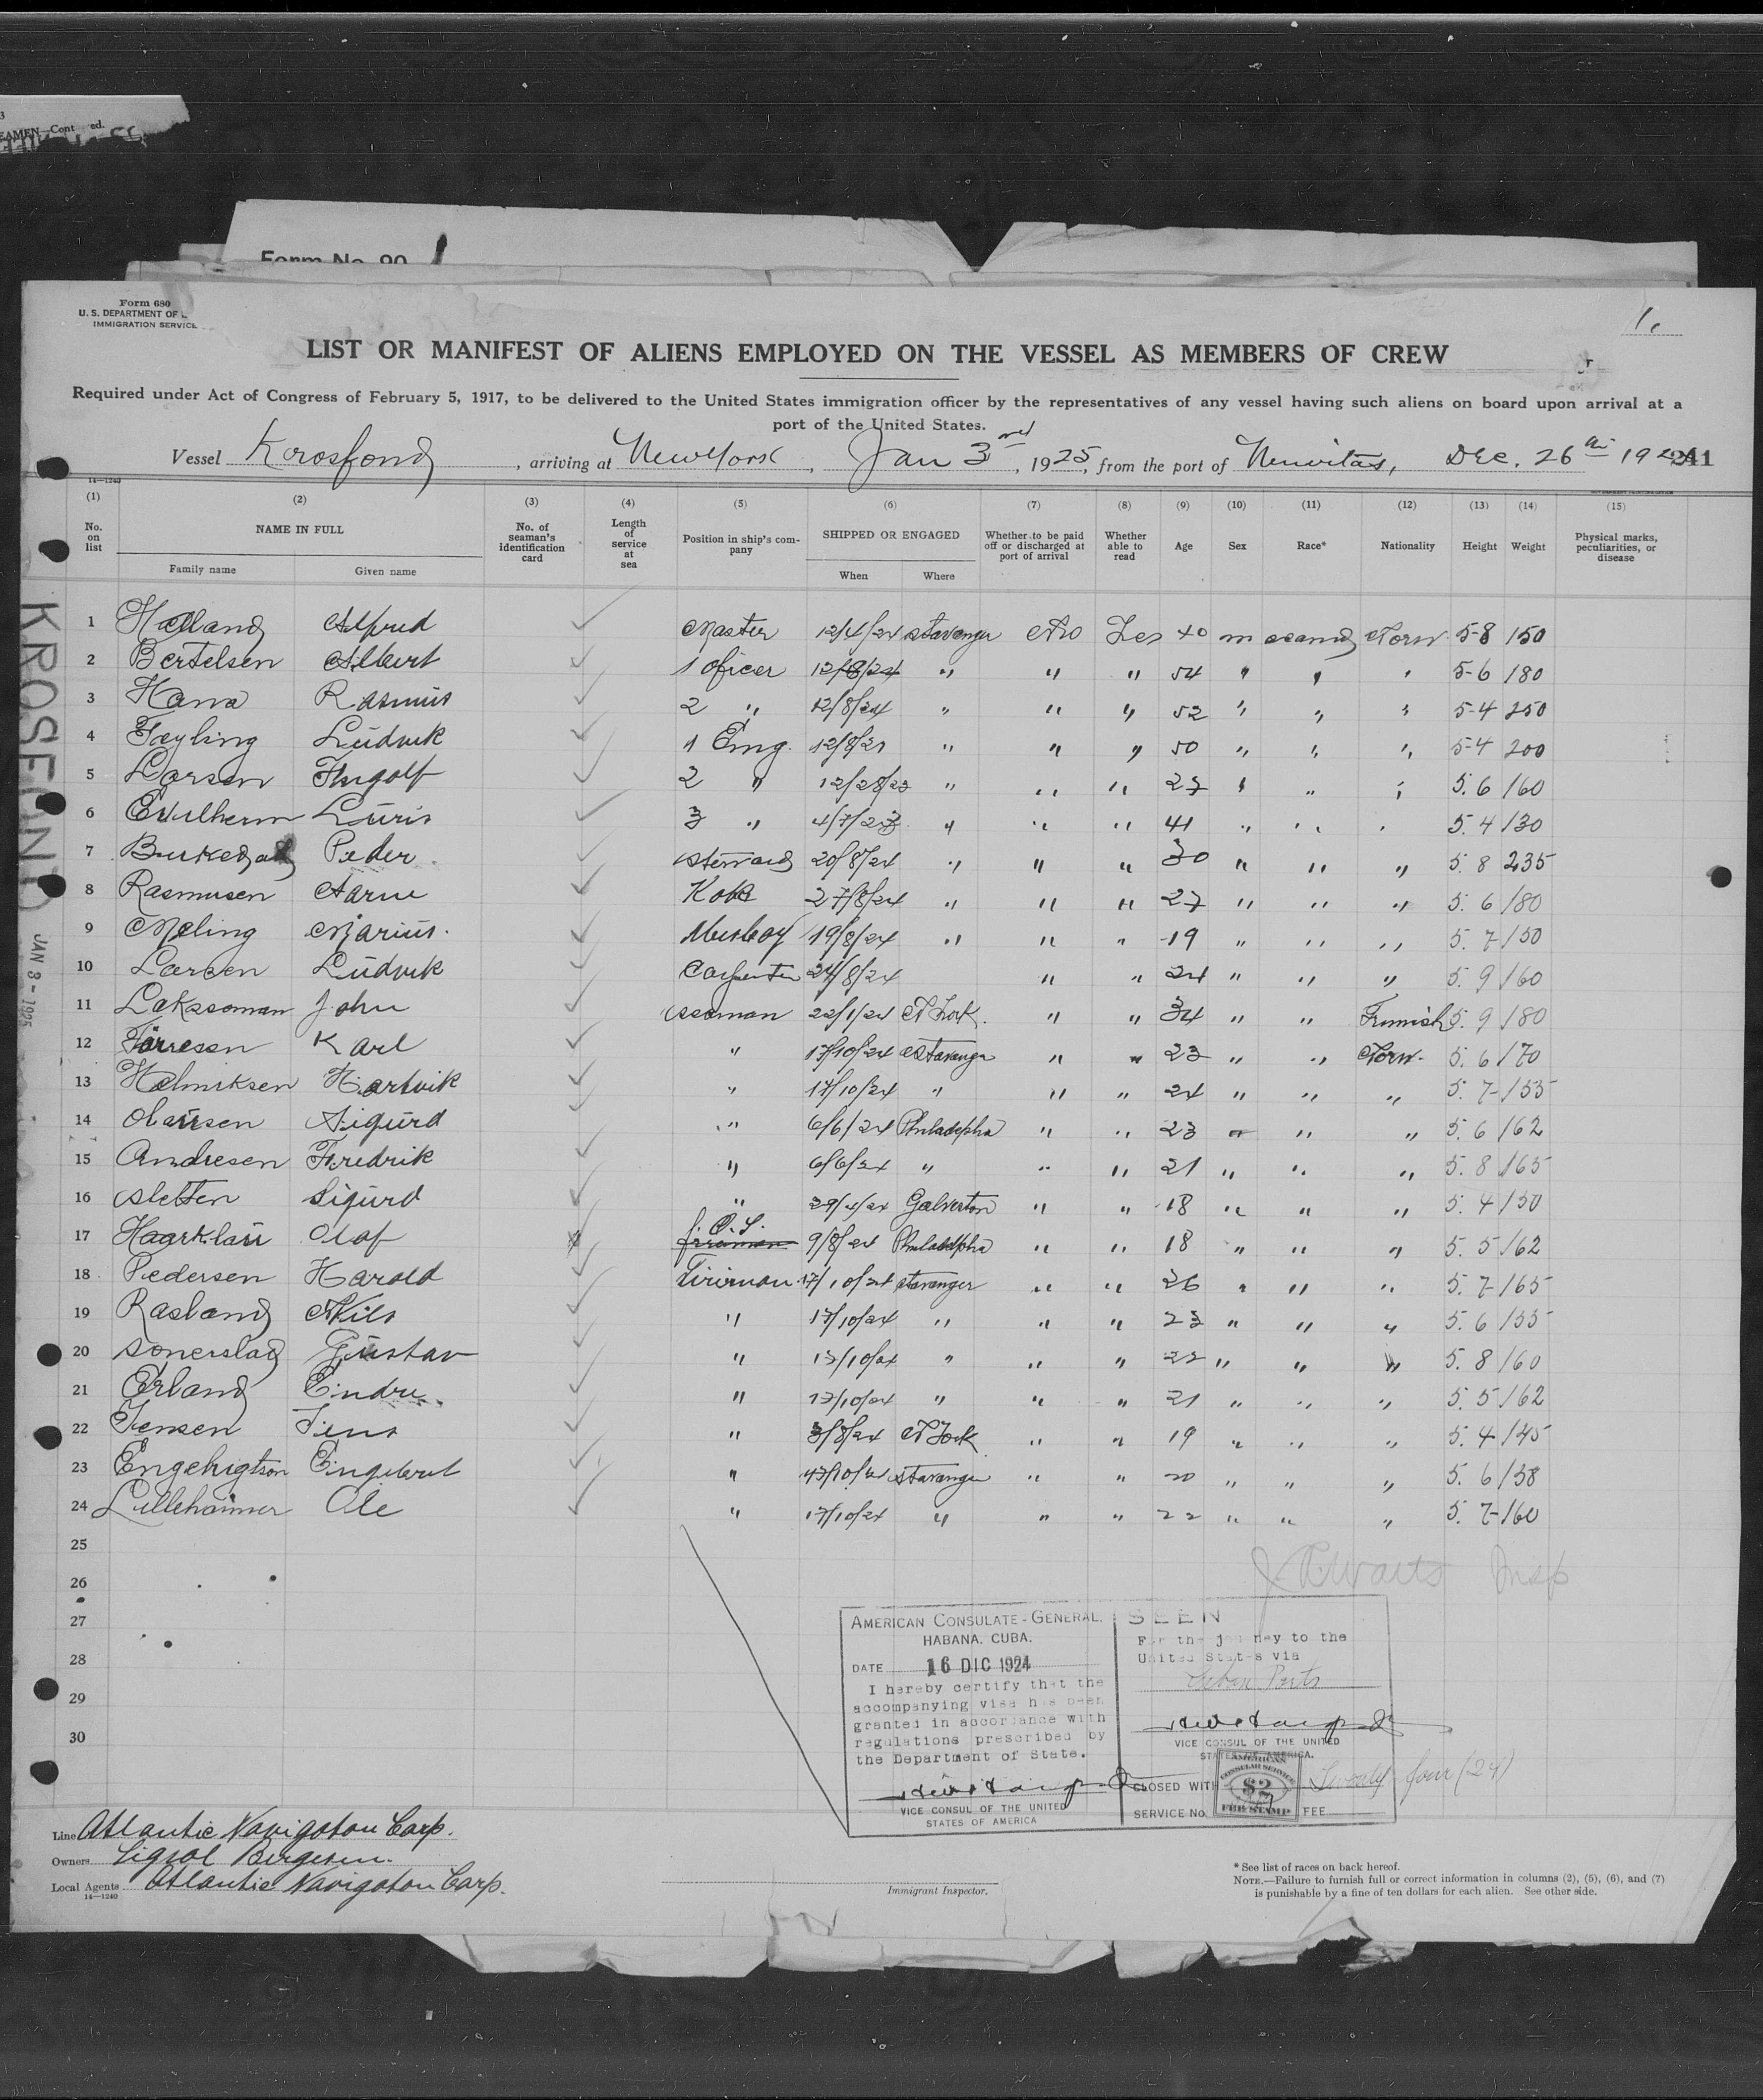 3
SEAMEN—Cont ed.
Form No. 90
Form 680
U. S. DEPARTMENT OF L
IMMIGRATION SERVICE
1,
LIST OR MANIFEST OF ALIENS EMPLOYED ON THE VESSEL AS MEMBERS OF CREW
Required under Act of Congress of February 5, 1917, to be delivered to the United States immigration officer by the representatives of any vessel having such aliens on board upon arrival at a
port of the United States.
Vessel Krosfond, arriving at New York, Jan 3rd, 1925, from the port of Nuvitas, Dec. 26th 192 241
14—1240
(1) (2) (3) (4) (5) (6) (7) (8) (9) (10) (11) (12) (13) (14) (15)
No. on list NAME IN FULL Family name Given name No. of seaman's identification card Length of service at sea Position in ship's company SHIPPED OR ENGAGED When Where Whether to be paid off or discharged at port of arrival Whether able to read Age Sex Race* Nationality Height Weight Physical marks, peculiarities, or disease
1 Helland Alfred Master 12/4/24 Stavanger No Yes 40 m scand Norw 5-8 150
2 Bertelsen Albert 1 oficer 12/8/24 " " " 54 " " " 5-6 180
3 Hana Rasmus 2 " 12/8/24 " " " 52 " " " 5-4 250
4 Ludvik 1 Eng. 12/8/21 " " " 50 " " " 5-4 200
5 Larsen Ingolf 2 " 12/28/23 " " " 27 " " " 5.6 160
6 3 " 4/7/23 " " " 41 " " " 5.4 130
7 Peder Steward 20/8/24 " " " 30 " " " 5.8 235
8 Rasmusen Aarne Kok 27/8/24 " " " 27 " " " 5.6 180
9 Meling Marius. Mesboy 19/8/24 " " " 19 " " " 5.7 150
10 Larsen Ludvik Carpenter 24/8/24 " " 24 " " " 5.9 160
11 Laksoman John Seaman 22/1/24 N York. " " 34 " " Finnish 5.9 180
12 Törresen Karl " 17/10/24 Stavanger " " 23 " " Norw. 5.6 170
13 Helmiksen Hartvik " 17/10/24 " " " 24 " " " 5.7 155
14 Olausen Sigurd " 6/6/24 Philadepha " " 23 " " " 5.6 162
15 Andresen Fredrik " 6/6/24 " " " 21 " " " 5.8 165
16 Sletten Sigurd " 29/4/24 Galverton " " 18 " " " 5.4 150
17 Haarklau Olaf O.S. 9/8/24 Philadelpha " " 18 " " " 5.5 162
18 Pedersen Harald Fireman 17/10/24 Stavanger " " 26 " " " 5.7 165
19 Rasland Nils " 17/10/24 " " " 23 " " " 5.6 155
20 Sonerslag Gustav " 17/10/24 " " " 22 " " " 5.8 160
21 Erland Eindre. " 17/10/24 " " " 21 " " " 5.5 162
22 Jensen Jens " 3/8/24 N York " " 19 " " " 5.4 145
23 Engebrigtson Engebret " 17/10/24 Stavanger " " 20 " " " 5.6 158
24 Lillehammer Ole " 17/10/24 " " " 22 " " " 5.7 160
25
26
27
28
29
30
KROSFOND JAN 3 - 1925
Insp
AMERICAN CONSULATE-GENERAL.
HABANA. CUBA.
DATE 16 DIC 1924
I hereby certify that the
accompanying visa has been
granted in accordance with
regulations prescribed by
the Department of State.
VICE CONSUL OF THE UNITED
STATES OF AMERICA
SEEN
For the journey to the
United States via
Cuban Ports
VICE CONSUL OF THE UNITED
STATES OF AMERICA.
CLOSED WITH Twenty-four (24)
SERVICE No. FEE
AMERICAN
CONSULAR SERVICE
$2
FEE STAMP
Line Atlantic Navigation Corp.
Owners Sigval Bergesen.
Local Agents Atlantic Navigation Corp.
14—1240
Immigrant Inspector.
* See list of races on back hereof.
NOTE.—Failure to furnish full or correct information in columns (2), (5), (6), and (7)
is punishable by a fine of ten dollars for each alien. See other side.